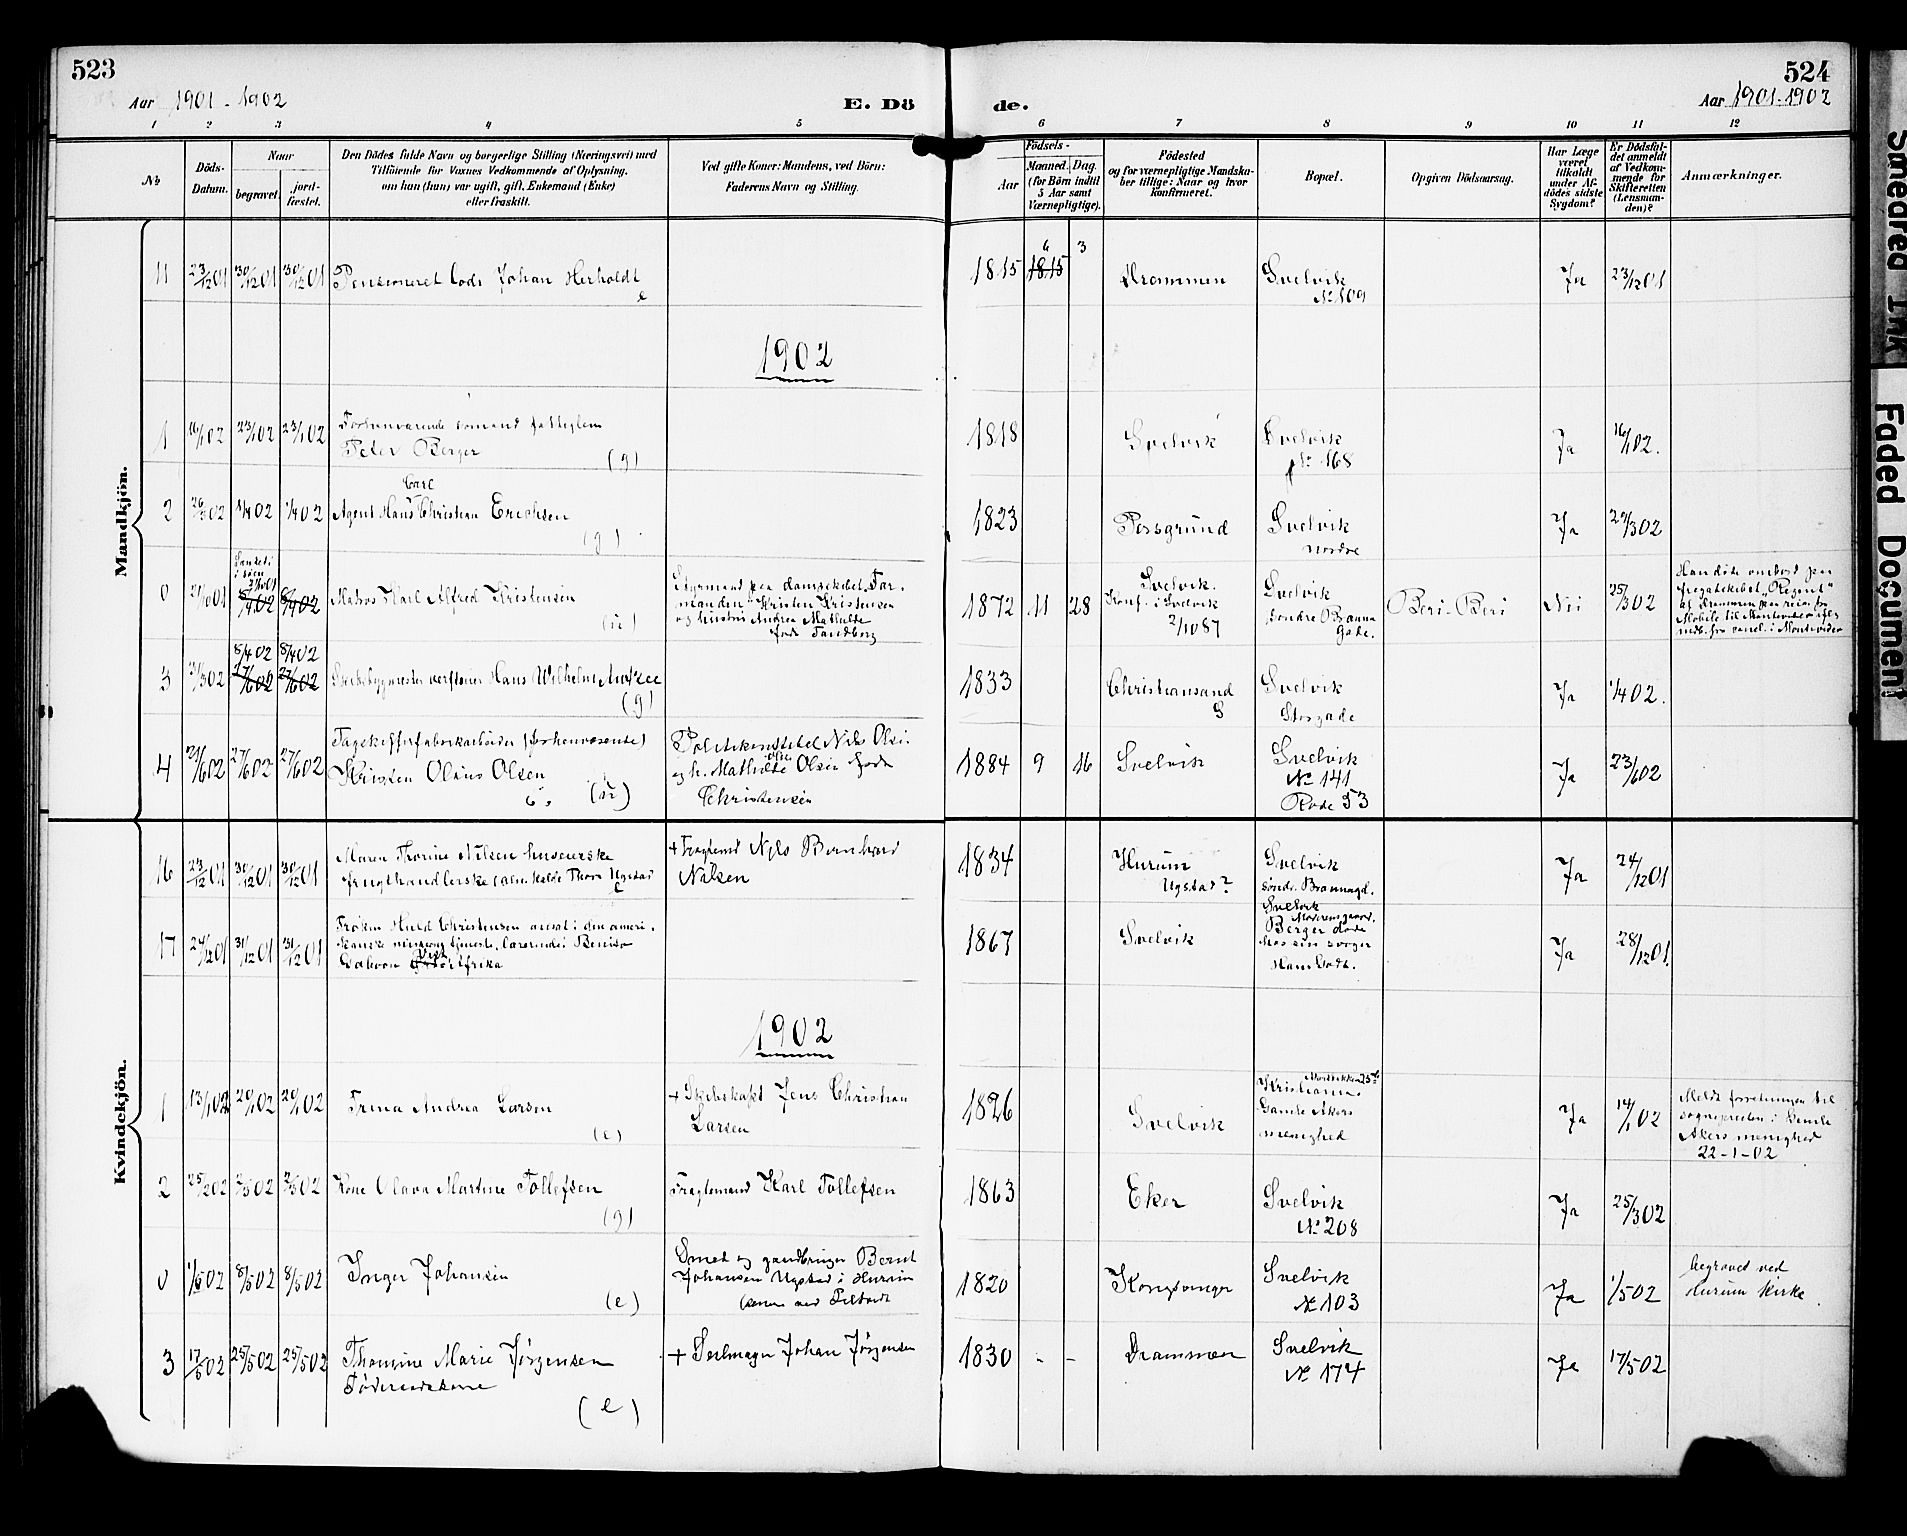 523
Aar 1901-1902
E. Dö
de.
524
Aar 1901-1902
1 2 3 4 5 6 7 8 9 10 11 12
No
Döds-
Datum.
Naar
begravet
jord-
fæstet.
Den Dödes fulde Navn og borgerlige Stilling (Næringsvei) med
Tilföiende for Voxnes Vedkommende af Oplysning,
om han (hun) var ugift, gift, Enkemand (Enke)
eller fraskilt.
Ved gifte Koner: Mandens, ved Börn:
Faderens Navn og Stilling.
Födsels-
Aar
Maaned. Dag.
(for Börn indtil
5 Aar samt
Værnepligtige).
Födested
og for værnepligtige Mandska-
ber tillige: Naar og hvor
konfirmeret.
Bopæl.
Opgiven Dödsaarsag.
Har Læge
været
tilkaldt
under Af-
dödes sidste
Sygdom?
Er Dödsfal-
det anmeldt
af Vedkom-
mende for
Skifteretten
(Lensman-
den)?
Anmærkninger.
Mandkjön.
11 23/12 01 30/12 01 30/12 01 Pensioneret Lods Johan Herholdt
e
1815 1815 6 3 Drammen Svelvik
No 109
Ja 23/12 01
1902
1 16/1 02 23/1 02 23/1 02 Forhenværende
Peter Berger
(g)
1818 Svelvik Svelvik
No 168
Ja 16/1 02.
2 26/3 02 1/4 02 1/4 02 Carl
Agent Hans Christian Erichsen
(g)
1823 Porsgrund Svelvik
nordre
Ja 29/3 02
0 21/10 01 Sænket i
i søen
21/10 01
8/4 02 8/4 02 Matros Karl Alfred Kristensen
(u)
Styrmand paa dampskibet "For-
manden" Kristen Kristensen
og hustru Andrea Mathilde
født Sandberg
1872 11 28 Svelvik.
Konf. i Svelvik
2/10 87
Svelvik
søndre Branna
Gade.
Beri-Beri Nei 25/3 02 Han døde ombord paa
fregatskibet "Regent"
af Drammen paa reise fra
Mobile til Montevideo ifølge
indb. fra consul. i Montevideo
3 31/3 02 8/4 02 8/4 02
27/6 02 27/6 02
Skibsbygmester verfteier Hans Wilhelm
(g)
1833 Christiansand
S
Svelvik
Storgade
Ja 1/4 02.
4 21/6 02 27/6 02 27/6 02 (forhenværende)
Kristen Olaus Olsen
(u)
Politikonstabel Nils Olsen
og h. Mathilde Olsen født
Christensen
1884 9 16 Svelvik Svelvik
No 141
Rode 53
Ja 23/6 02
Kvindekjön.
16 23/12 01 30/12 01 30/12 01 Maren Thorine Nilsen huseierske
frugthandlerske (alm. kaldt Thora Ugstad
e
+ Fragtemd Nils Bernhard
Nilsen
1834 Hurum
Ugstad?
Svelvik
søndr. Brannagd.
Ja 24/12 01
17 24/12 01 31/12 01 31/12 01 Frøken Huld Christensen ansat i den ameri-
kanske missions tjeneste, lærerinde i Benito
Gaboon Vestafrika
1867 Svelvik Svelvik
Berger døde
hos sin svoger
Hans
Ja 28/12 01.
1902
1 13/1 02 20/1 02 20/1 02 Trina Andrea Larsen
(e)
+ Skibskapt Jens Christian
Larsen
1826 Svelvik
Kristiania
Gamle Akers
menighed
Ja 14/1 02 Meldt forretningen til
sognepresten i Gamle
Akers menighed
22-1-02
2 25/2 02 2/3 02 2/3 02 Kone Olava Martine Tollefsen
(g)
Fragtemand Karl Tollefsen
1863 Eker Svelvik
No 208
Ja 25/3 02
0 1/5 02 8/5 02 8/5 02 Inger Johansen
(e)
Smed og gaardbruger Bernt
Johansen Ugstad i Hurum
1820 Kongsvinger Svelvik
No 103
Ja 1/5 02 begravet ved
Hurum kirke
3 17/5 02 25/5 02 25/5 02 Thomine Marie Jørgensen
Føderaadskone
(e)
+ Seilmager Johan Jørgensen
1830 - - Drammen Svelvik
No 174
Ja 17/5 02
Smeared Ink
Faded Document